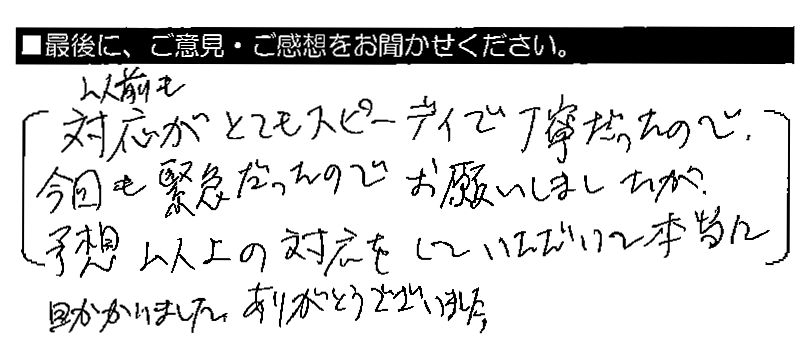 ■最後に、ご意見・ご感想をお聞かせください。
以前も
対応がとてもスピーディで丁寧だったので、
今回も緊急だったのでお願いしましたが、
予想以上の対応をしていただいて本当に
助かりました。ありがとうございました。